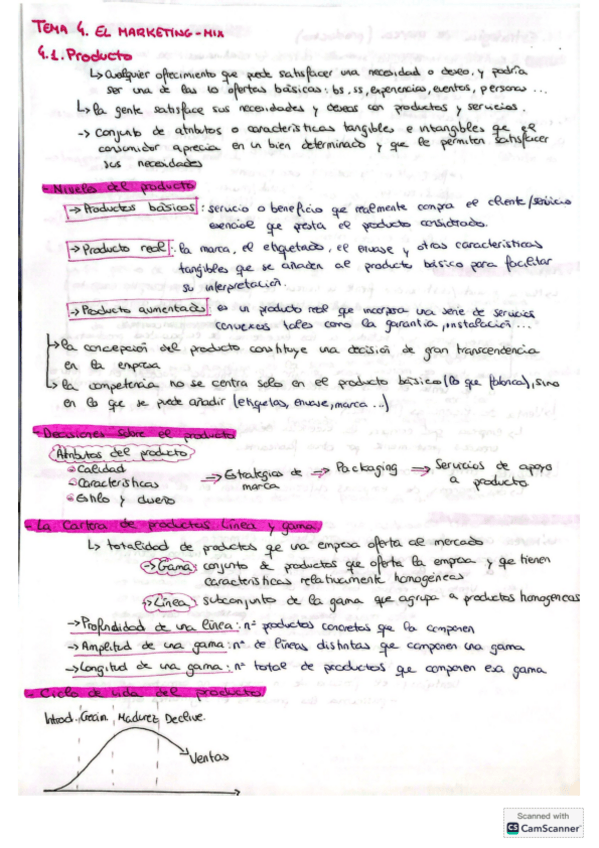 TEMA 4. EL MARKETING-MIX
4.1. Producto
↳ Cualquier ofrecimiento que puede satisfacer una necesidad o deseo, y podría
ser una de las 10 ofertas básicas: bs, ss, experiencias, eventos, personas...
↳ la gente satisface sus necesidades y deseos con productos y servicios.
→ Conjunto de atributos o características tangibles e intangibles que el
consumidor aprecia en un bien determinado y que le permiten satisfacer
sus necesidades
- Niveles del producto
→ Productos básicos: servicio o beneficio que realmente compra el cliente/servicio
esencial que presta el producto considerado.
→ Producto real: la marca, el etiquetado, el envase y otras características
tangibles que se añaden al producto básico para facilitar
su interpretación
→ Producto aumentado: es un producto real que incorpora una serie de servicios
conexos tales como la garantía, instalación...
↳ la concepción del producto constituye una decisión de gran transcendencia
en la empresa
↳ la competencia no se centra solo en el producto básico (lo que fabrica), sino
en lo que se puede añadir (etiquetas, envase, marca...)
- Decisiones sobre el producto
Atributos del producto
Calidad
Características
Estilo y diseño
→ Estrategias de marca → Packaging → Servicios de apoyo a producto
- La Cartera de productos. Línea y gama.
↳ totalidad de productos que una empresa oferta al mercado
→ Gama: conjunto de productos que oferta la empresa y que tienen
características relativamente homogéneas
→ Línea: subconjunto de la gama que agrupa a productos homogéneos
→ Profundidad de una línea: nº productos concretos que la componen
→ Amplitud de una gama: nº de líneas distintas que componen una gama
→ Longitud de una gama: nº total de productos que componen esa gama
- Ciclo de vida del producto
Introd. Crecim. Madurez Declive.
Ventas
Scanned with
CS CamScanner